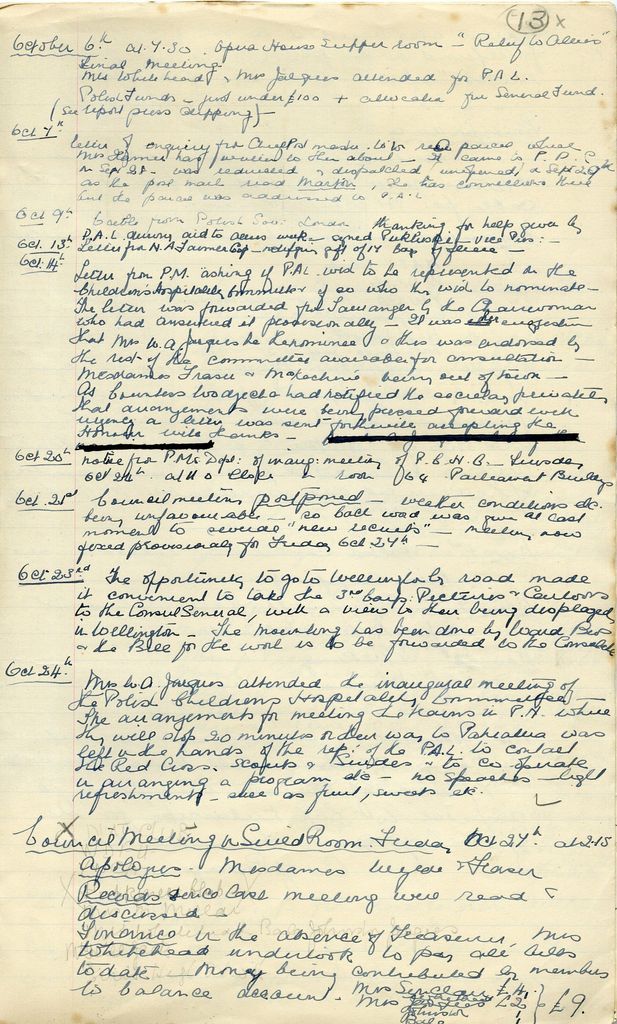 13 x
October 6th at 7.30 Opera House Supper room - "Relief to Allies"
Final Meeting
Mrs Whitehead & Mrs Jacques attended for P.A.L.
Polish Funds - just under £100 + allocation for General Fund.
(See report press clipping) -
Oct 7th
Letter of enquiry from Chief Post master to
Mrs has written to them about - It came
in Sept 21 - was & despatched unopened, Sept 26th
as the post mark read Marton, She has connections there
but the parcel was addressed to P.A.L
Oct 9th Cable from Polish Gov: London thanking for help given by
Oct. 13th P.A.L. during aid to
Letter from gift of 17 bags of fleece -
Oct. 14th
Letter from P.M. asking if P.A.L. wid to be represented on the
Children's Hospitality Committee & if so who this wid to nominate -
The letter was forwarded from Tauranga by the Chairwoman
who had answered it provisionally - It was her suggestion
that Mrs W.A. Jacques be the nominee & this was endorsed by
the rest of the committee available for consultation -
Mesdames Fraser & being out of town -
As Countess Wodzicka had notified the secretary privately
that arrangements were being pressed forward with
urgency a letter was sent forthwith accepting the
Honour with thanks -
Oct 20th notice from P.M's Dept: of inaug: meeting of P.C.H.C. - Tuesday
Oct 24th at 11 o clock in room 68 Parliament Buildings
Oct. 21st Council meeting postponed - weather conditions etc.
being unfavourable - so back word was given at last
moment to several "new recruits" - meeting now
fixed provisionally for Friday Oct 27th -
Oct 23rd The opportunity to go to Wellington by road made
it convenient to take the 3 Pictures & Cartoons
to the Consul General, with a view to their being displayed
in Wellington - The mounting has been done by Bros
& the Bill for the work is to be forwarded to the Consulate
Oct 24th
Mrs W.A. Jacques attended the inaugural meeting of
the Polish Children's Hospitality Committee -
The arrangements for meeting the trains in P.N. where
they will stop 20 minutes on their way to Pahiatua was
left in the hands of the rep: of the P.A.L. to contact
the Red Cross. Scouts & Guides & to co-operate
in arranging a program etc - no speeches - light
refreshments - such as fruit, sweets etc.
Council Meeting in Guild Room. Friday Oct 27th at 2.15
Apologies. Mesdames & Fraser
Records since last meeting were read &
discussed
Finance in the absence of Treasurer, Mrs
Whitehead undertook to pay all bills
to date Money being contributed by members
to balance account. Mrs Sinclair £4.
Mrs £2 } £9.